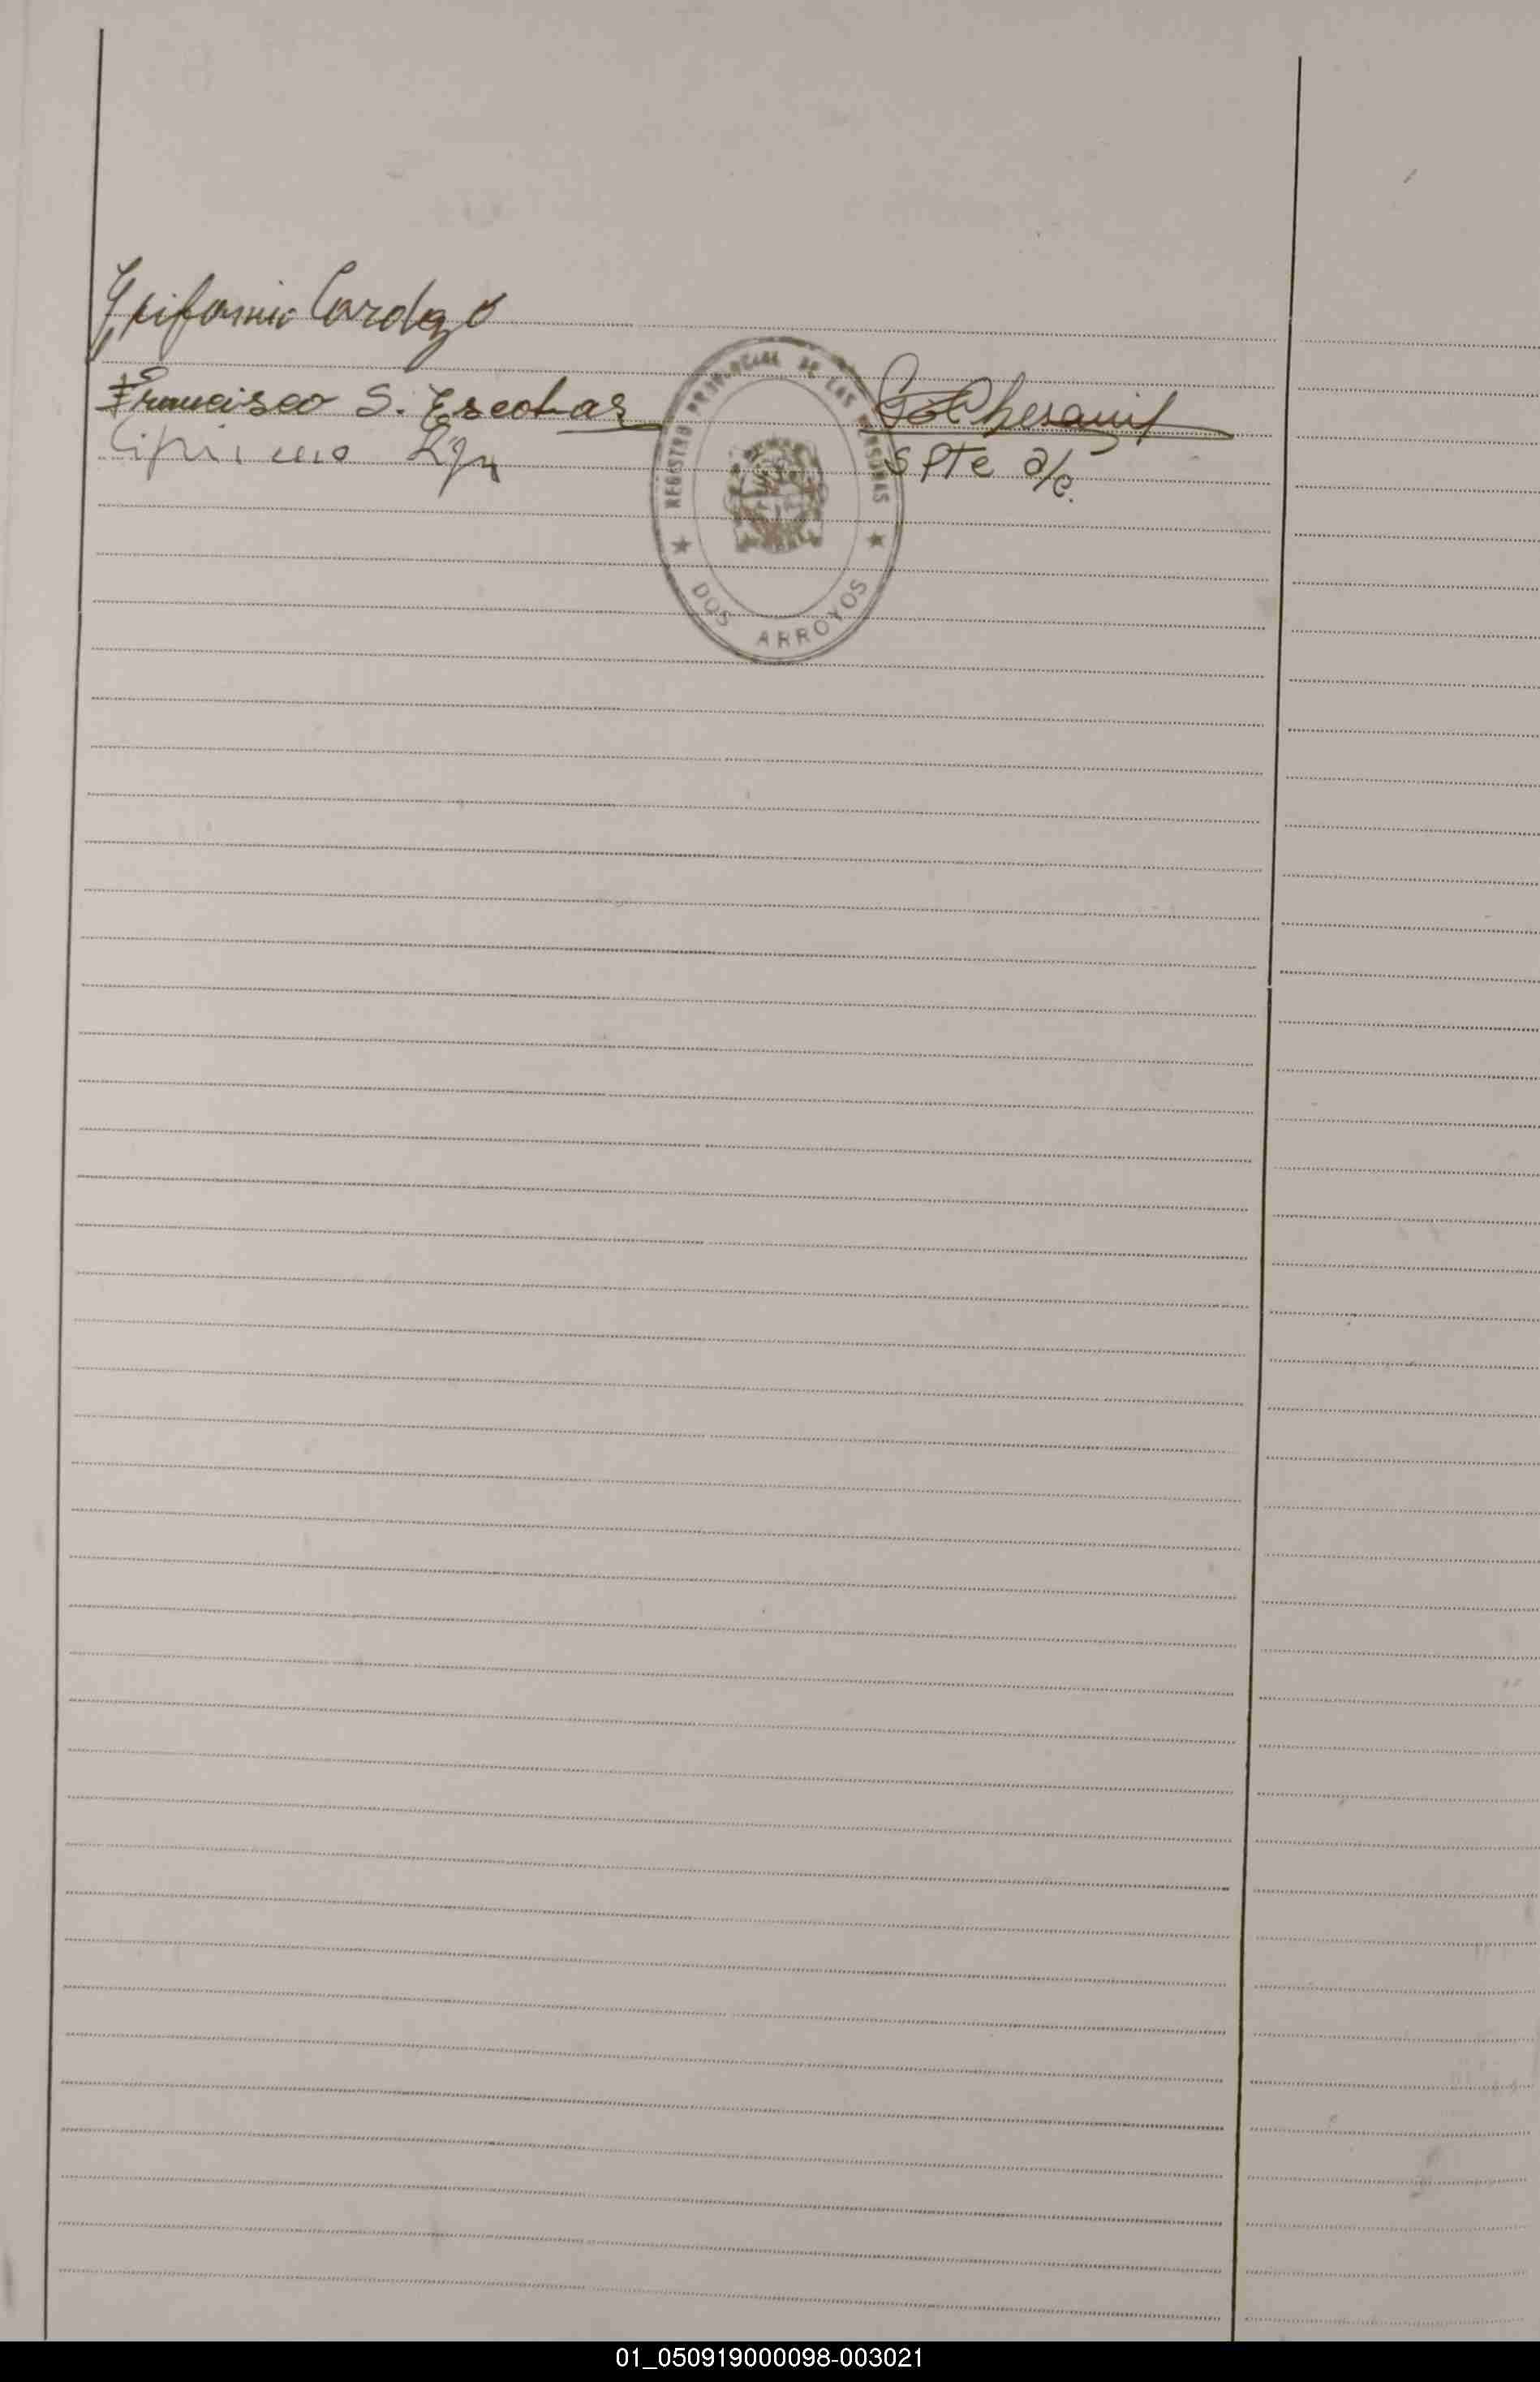 Epifanio Cardozo
Francisco S. Escobar
Cipriano
REGISTRO PROVINCIAL DE LAS PERSONAS
DOS ARROYOS
SPTe a/c.
01_050919000098-003021